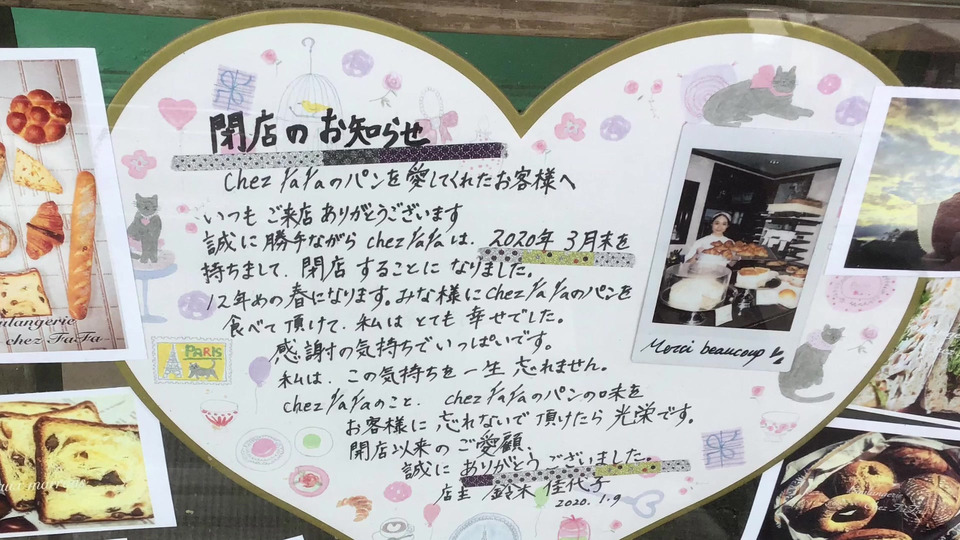 閉店のお知らせ
chez fafaのパンを愛してくれたお客様へ
いつもご来店ありがとうございます
誠に勝手ながら chez fafaは、2020年 3月末を
持ちまして、閉店することになりました。
12年めの春になります。みな様にchez fafaのパンを
食べて頂けて、私はとても幸せでした。
感謝の気持ちでいっぱいです。
私は、この気持ちを一生忘れません。
chez fafaのこと、chez fafaのパンの味を
お客様に忘れないで頂けたら光栄です。
開店以来のご愛顧、
誠にありがとうございました。
店主 鈴木佳代子
2020.1.9
Merci beaucoup
PARIS
oulangerie
chez FaFa